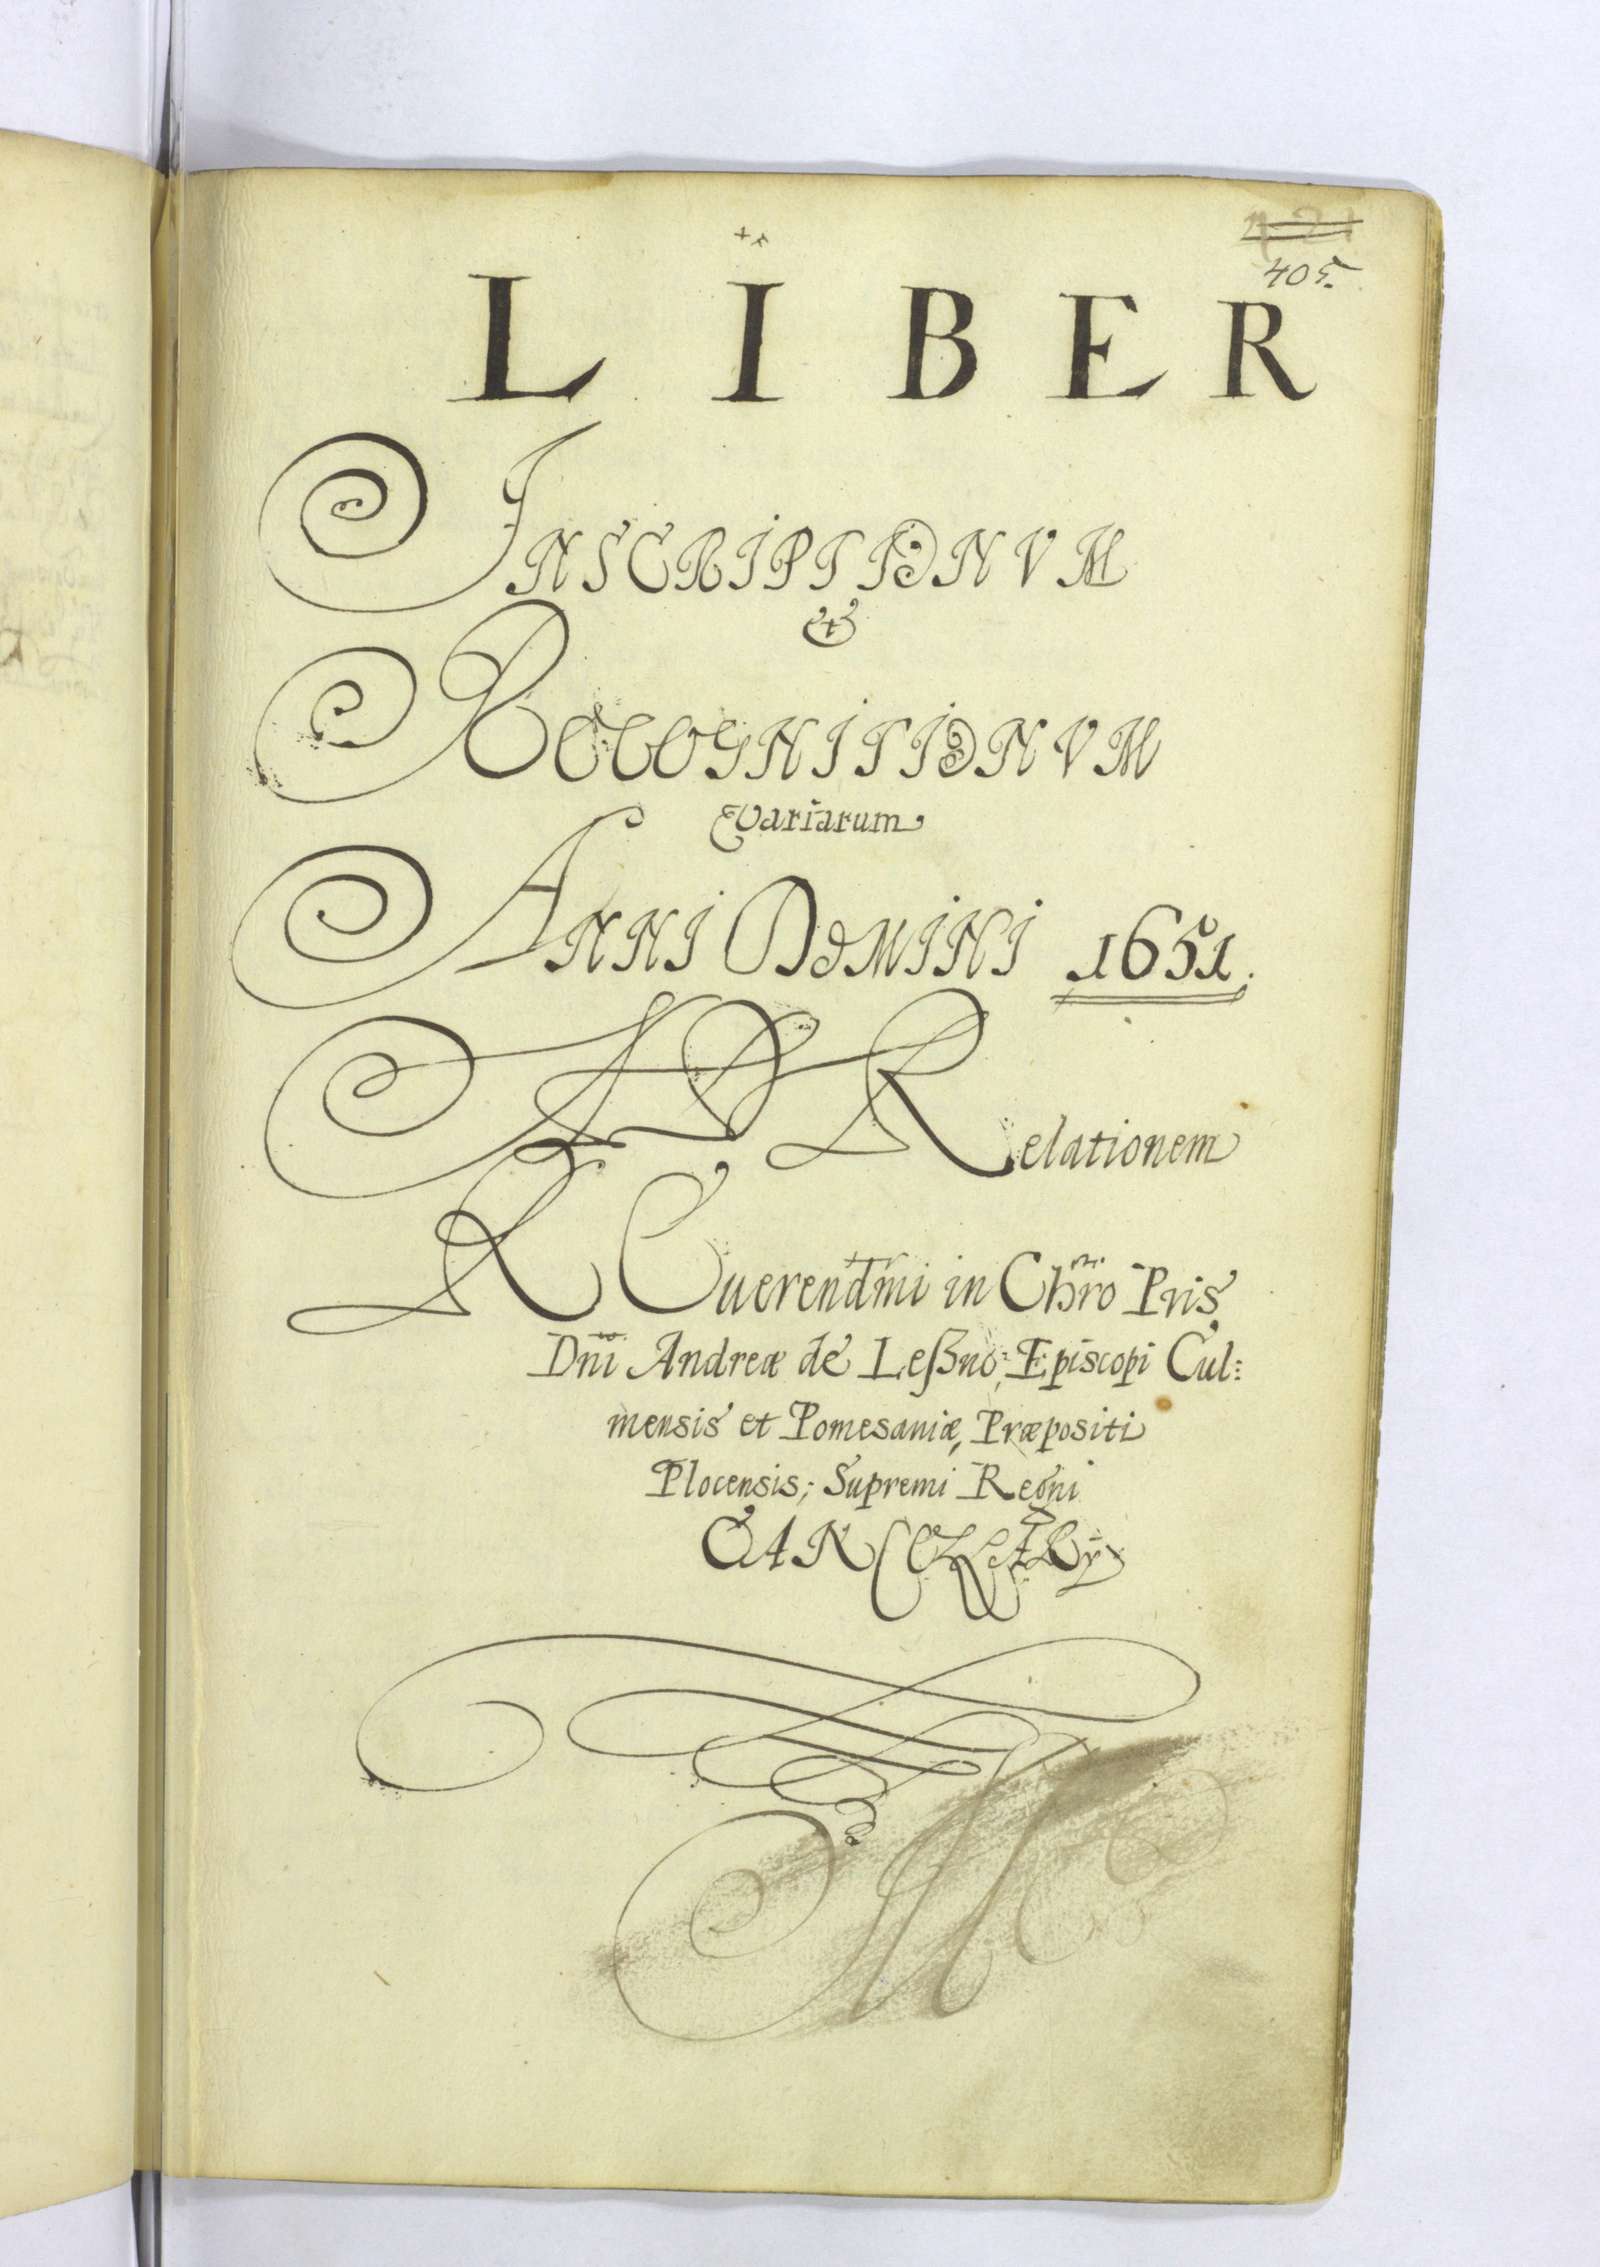 405.
LIBER
INSCRIPTIONVM
&
RECOGNITIONVM
variarum
ANNI DOMINI 1651.
AD Relationem
REuerendmi in Chro Pris
Dni Andreæ de Leszno, Episcopi Cul:
mensis et Pomesaniæ, Præpositi
Plocensis; Supremi Regni
CANCELLARY